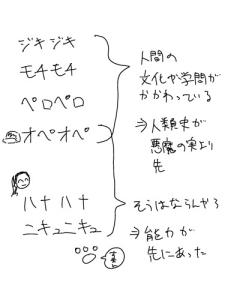 ジキジキ
モチモチ
ペロペロ
オペオペ
ハナハナ
ニキュニキュ
人間の
文化や学問が
かかわっている
⇒人類史が
悪魔の実より
先
そうはならんやろ
⇒能力が
先にあった